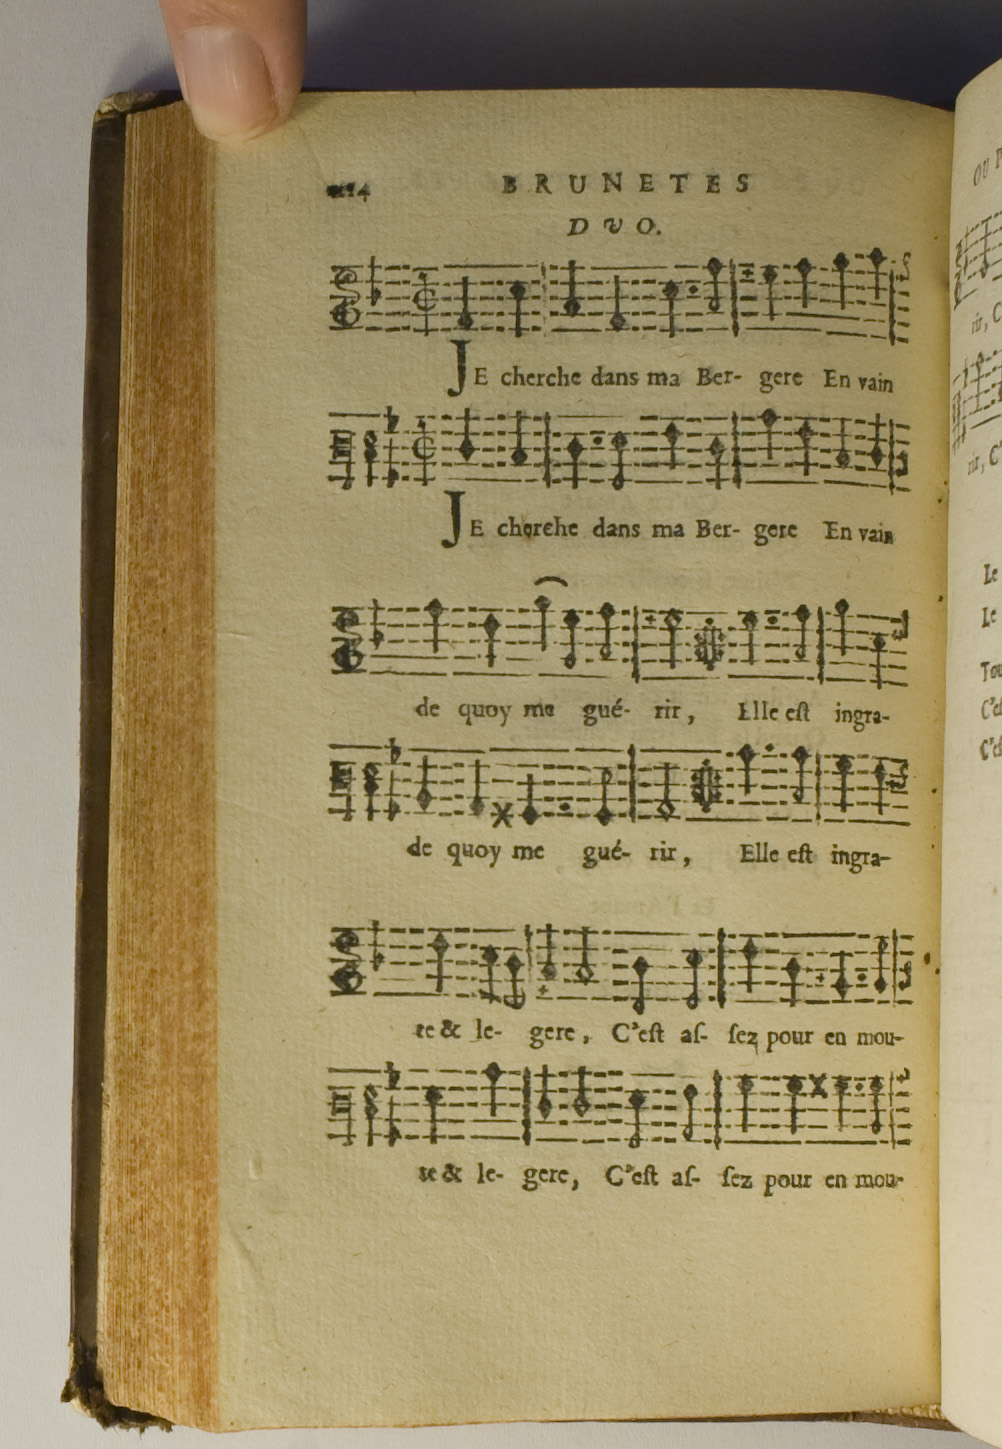 BRUNETES
DVO.
JE cherche dans ma Ber- gere En vain
JE cherche dans ma Ber- gere En vain
de quoy me gué- rir, Elle eſt ingra-
de quoy me gué- rir, Elle eſt ingra-
te & le- gere, C'eſt aſ- ſez pour en mou-
te & le- gere, C'eſt aſ- ſez pour en mou-
OU
rir, C
rir, C'
Le
Le